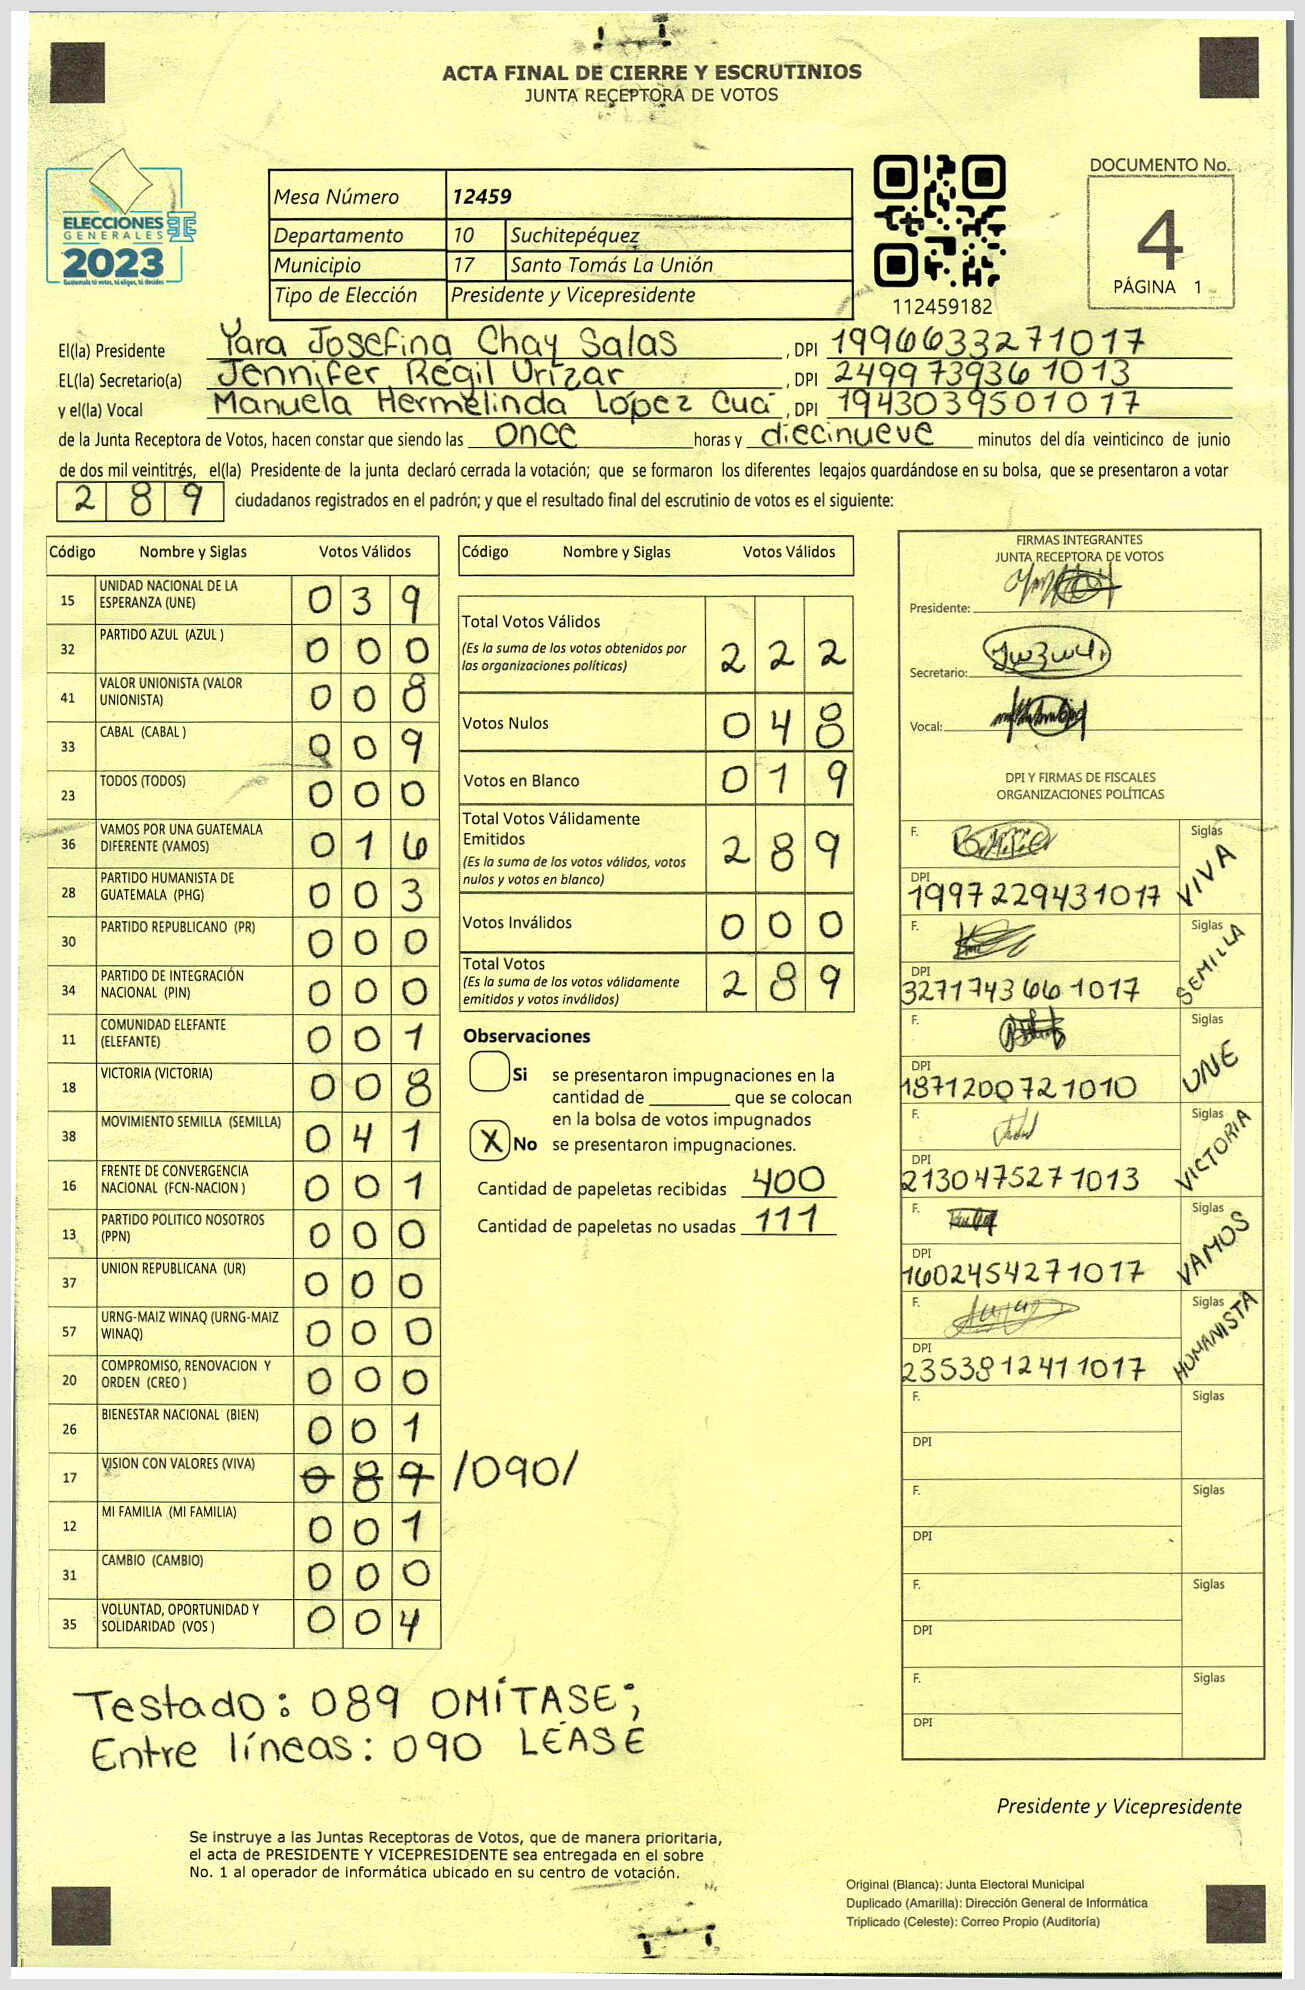 ACTA FINAL DE CIERRE Y ESCRUTINIOS
JUNTA RECEPTORA DE VOTOS
ELECCIONES
GENERALES
2023
Guatemala tú votas, tú eliges, tú decides
Mesa Número 12459
Departamento 10 Suchitepéquez
Municipio 17 Santo Tomás La Unión
Tipo de Elección Presidente y Vicepresidente
112459182
DOCUMENTO No.
4
PÁGINA 1
El(la) Presidente Yara Josefina Chay Salas, DPI 1996633271017
EL(la) Secretario(a) Jennifer Régil Urízar, DPI 2499739361013
y el(la) Vocal Manuela Hermelinda López Cuá, DPI 1943039501017
de la Junta Receptora de Votos, hacen constar que siendo las once horas y diecinueve minutos del día veinticinco de junio
de dos mil veintitrés, el(la) Presidente de la junta declaró cerrada la votación; que se formaron los diferentes legajos guardándose en su bolsa, que se presentaron a votar
289 ciudadanos registrados en el padrón; y que el resultado final del escrutinio de votos es el siguiente:
Código Nombre y Siglas Votos Válidos
15 UNIDAD NACIONAL DE LA ESPERANZA (UNE) 039
32 PARTIDO AZUL (AZUL ) 000
41 VALOR UNIONISTA (VALOR UNIONISTA) 008
33 CABAL (CABAL ) 009
23 TODOS (TODOS) 000
36 VAMOS POR UNA GUATEMALA DIFERENTE (VAMOS) 016
28 PARTIDO HUMANISTA DE GUATEMALA (PHG) 003
30 PARTIDO REPUBLICANO (PR) 000
34 PARTIDO DE INTEGRACIÓN NACIONAL (PIN) 000
11 COMUNIDAD ELEFANTE (ELEFANTE) 001
18 VICTORIA (VICTORIA) 008
38 MOVIMIENTO SEMILLA (SEMILLA) 041
16 FRENTE DE CONVERGENCIA NACIONAL (FCN-NACION ) 001
13 PARTIDO POLITICO NOSOTROS (PPN) 000
37 UNION REPUBLICANA (UR) 000
57 URNG-MAIZ WINAQ (URNG-MAIZ WINAQ) 000
20 COMPROMISO, RENOVACION Y ORDEN (CREO ) 000
26 BIENESTAR NACIONAL (BIEN) 001
17 VISION CON VALORES (VIVA) 089 /090/
12 MI FAMILIA (MI FAMILIA) 001
31 CAMBIO (CAMBIO) 000
35 VOLUNTAD, OPORTUNIDAD Y SOLIDARIDAD (VOS ) 004
Testado: 089 OMÍTASE;
Entre líneas: 090 LÉASE
Código Nombre y Siglas Votos Válidos
Total Votos Válidos
(Es la suma de los votos obtenidos por
las organizaciones políticas) 222
Votos Nulos 048
Votos en Blanco 019
Total Votos Válidamente
Emitidos
(Es la suma de los votos válidos, votos
nulos y votos en blanco) 289
Votos Inválidos 000
Total Votos
(Es la suma de los votos válidamente
emitidos y votos inválidos) 289
Observaciones
Si se presentaron impugnaciones en la
cantidad de ________ que se colocan
en la bolsa de votos impugnados
X No se presentaron impugnaciones.
Cantidad de papeletas recibidas 400
Cantidad de papeletas no usadas 111
FIRMAS INTEGRANTES
JUNTA RECEPTORA DE VOTOS
Presidente:
Secretario:
Vocal:
DPI Y FIRMAS DE FISCALES
ORGANIZACIONES POLÍTICAS
F. Siglas VIVA
DPI 1997229431017
F. Siglas SEMILLA
DPI 3271743661017
F. Siglas UNE
DPI 1871200721010
F. Siglas VICTORIA
DPI 2130475271013
F. Siglas VAMOS
DPI 1602454271017
F. Siglas HUMANISTA
DPI 2353812411017
F. Siglas
DPI
F. Siglas
DPI
F. Siglas
DPI
F. Siglas
DPI
Presidente y Vicepresidente
Se instruye a las Juntas Receptoras de Votos, que de manera prioritaria,
el acta de PRESIDENTE Y VICEPRESIDENTE sea entregada en el sobre
No. 1 al operador de informática ubicado en su centro de votación.
Original (Blanca): Junta Electoral Municipal
Duplicado (Amarilla): Dirección General de Informática
Triplicado (Celeste): Correo Propio (Auditoría)